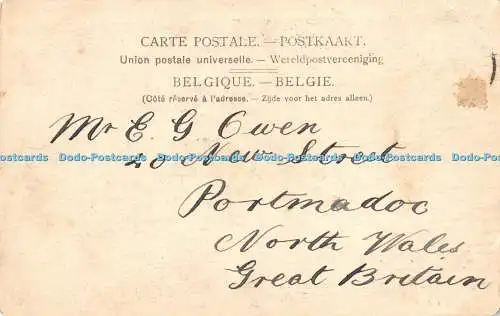 CARTE POSTALE. — POSTKAART.
Union postale universelle. — Wereldpostvereeniging
BELGIQUE. — BELGIE.
(Côté réservé à l'adresse. — Zijde voor het adres alleen.)
Mr E G Owen
20 New Street
Portmadoc
North Wales
Great Britain
Dodo-Postcards Dodo-Postcards Dodo-Postcards Dodo-Postcards Dodo-Postcards